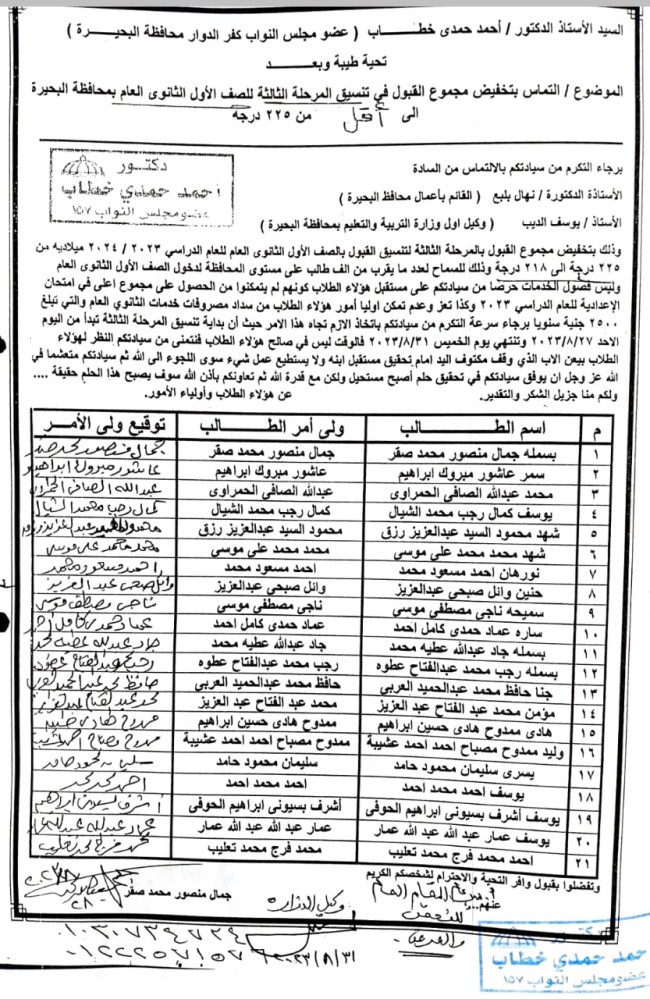 السيد الأستاذ الدكتور / أحمد حمدى خطـــــاب ( عضو مجلس النواب كفر الدوار محافظة البحيرة )
تحية طيبة وبعـــــد
الموضوع / التماس بتخفيض مجموع القبول في تنسيق المرحلة الثالثة للصف الأول الثانوى العام بمحافظة البحيرة
الى أقل من ٢٢٥ درجة
دكتور
أحمد حمدي خطاب
عضو مجلس النواب ١٥٧
برجاء التكرم من سيادتكم بالالتماس من السادة
الأستاذة الدكتورة / نهال بلبع ( القائم بأعمال محافظ البحيرة )
الأستاذ / يوسف الديب ( وكيل اول وزارة التربية والتعليم بمحافظة البحيرة )
وذلك بتخفيض مجموع القبول بالمرحلة الثالثة لتنسيق القبول بالصف الأول الثانوى العام للعام الدراسي ٢٠٢٣ / ٢٠٢٤ ميلاديه من
٢٢٥ درجة الى ٢١٨ درجة وذلك للسماح لعدد ما يقرب من الف طالب على مستوى المحافظة لدخول الصف الأول الثانوى العام
وليس فصول الخدمات حرصا من سيادتكم على مستقبل هؤلاء الطلاب كونهم لم يتمكنوا من الحصول على مجموع اعلى في امتحان
الإعدادية للعام الدراسي ٢٠٢٣ وكذا تعز وعدم تمكن اوليا أمور هؤلاء الطلاب من سداد مصروفات خدمات الثانوي العام والتي تبلغ
٢٥٠٠ جنية سنويا برجاء سرعة التكرم من سيادتكم باتخاذ الازم تجاه هذا الامر حيث أن بداية تنسيق المرحلة الثالثة تبدأ من اليوم
الاحد ٢٠٢٣/٨/٢٧ وتنتهي يوم الخميس ٢٠٢٣/٨/٣١ فالوقت ليس في صالح هؤلاء الطلاب فنتمنى من سيادتكم النظر لهؤلاء
الطلاب بيعن الاب الذي وقف مكتوف اليد امام تحقيق مستقبل ابنه ولا يستطيع عمل شيء سوى اللجوء الى الله ثم سيادتكم متعشما في
الله عز وجل ان يوفق سيادتكم في تحقيق حلم أصبح مستحيل ولكن مع قدرة الله ثم تعاونكم بأذن الله سوف يصبح هذا الحلم حقيقة ....
ولكم منا جزيل الشكر والتقدير. عن هؤلاء الطلاب وأولياء الأمور.
م اسم الطـــــالب ولى أمر الطـــــالب توقيع ولى الأمر
١ بسمله جمال منصور محمد صقر جمال منصور محمد صقر جمال منصور محمد صقر
٢ سمر عاشور مبروك ابراهيم عاشور مبروك ابراهيم عاشور مبروك ابراهيم
٣ محمد عبدالله الصافي الحمراوى عبدالله الصافي الحمراوى عبدالله الصافى
٤ يوسف كمال رجب محمد الشيال كمال رجب محمد الشيال كمال رجب محمد الشيال
٥ شهد محمود السيد عبدالعزيز رزق محمود السيد عبدالعزيز رزق محمود السيد عبدالعزيز
٦ شهد محمد محمد على موسى محمد محمد على موسى محمد محمد على موسى
٧ نورهان احمد مسعود محمد احمد مسعود محمد احمد مسعود محمد
٨ حنين وائل صبحي عبدالعزيز وائل صبحي عبدالعزيز وائل صبحى عبد العزيز
٩ سميحه ناجي مصطفي موسى ناجي مصطفي موسى ناجى مصطفى موسى
١٠ ساره عماد حمدى كامل احمد عماد حمدى كامل احمد عماد حمدى كامل
١١ بسمله جاد عبدالله عطيه محمد جاد عبدالله عطيه محمد جاد عبدالله عطيه محمد
١٢ بسمله رجب محمد عبدالفتاح عطوه رجب محمد عبدالفتاح عطوه رجب محمد عبدالفتاح عطوه
١٣ جنا حافظ محمد عبدالحميد العربي حافظ محمد عبدالحميد العربي حافظ محمد عبدالحميد العربى
١٤ مؤمن محمد عبد الفتاح عبد العزيز محمد عبد الفتاح عبد العزيز محمد عبد الفتاح عبدالعزيز
١٥ هادى ممدوح هادى حسين ابراهيم ممدوح هادى حسين ابراهيم ممدوح هادى حسين
١٦ وليد ممدوح مصباح احمد احمد عشيبة ممدوح مصباح احمد احمد عشيبة ممدوح مصباح احمد
١٧ يسرى سليمان محمود حامد سليمان محمود حامد سليمان محمود حامد
١٨ يوسف احمد محمد احمد احمد محمد احمد احمد محمد
١٩ يوسف أشرف بسيونى ابراهيم الحوفى أشرف بسيونى ابراهيم الحوفى أشرف بسيونى ابراهيم
٢٠ يوسف عمار عبد الله عبد الله عمار عمار عبد الله عبد الله عمار عمار عبدالله عبدالله
٢١ احمد محمد فرج محمد تعليب محمد فرج محمد تعليب محمد فرج محمد تعليب
وتفضلوا بقبول وافر التحية والاحترام لشخصكم الكريم
عنهم... جمال منصور محمد صقر
وكيل الوزارة
٢٠٢٣/٨/٣١
٠١٠٣٠٧٣٤٧٢٤
دكتور
أحمد حمدي خطاب
عضو مجلس النواب ١٥٧